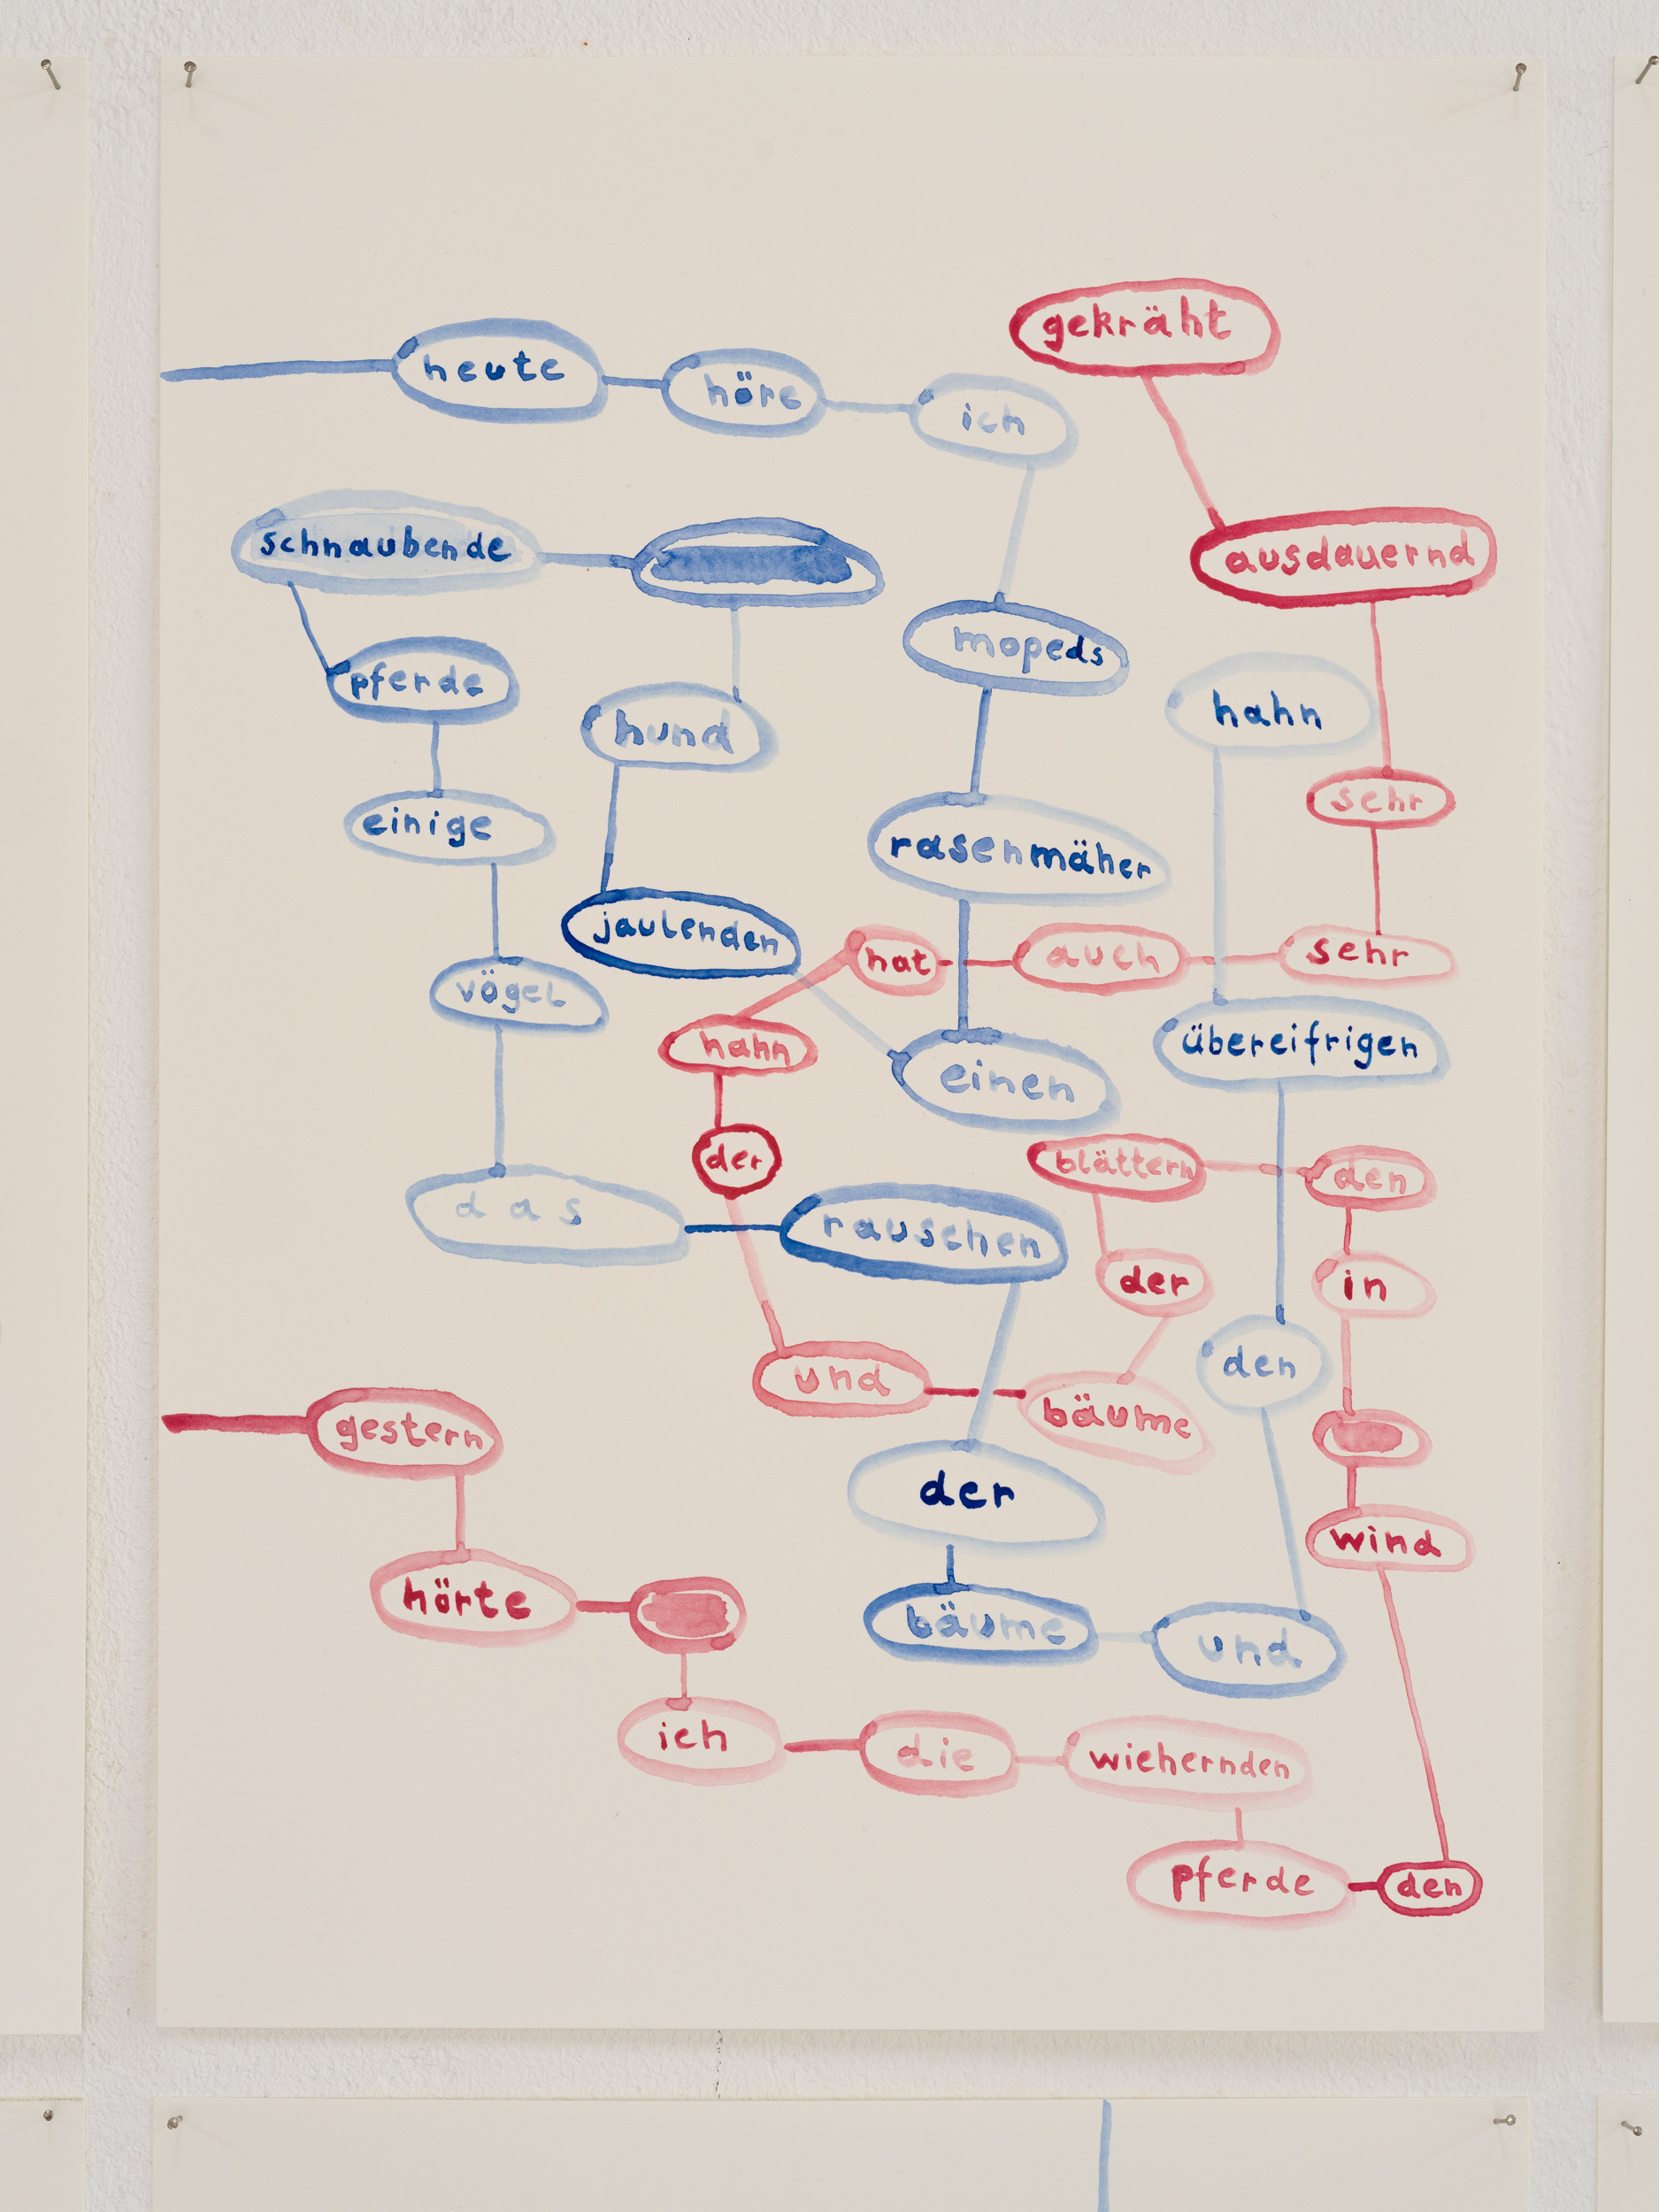 heute
höre
ich
mopeds
rasenmäher
einen
jaulenden
hund
schnaubende
pferde
einige
vögel
das
rauschen
der
bäume
und
den
übereifrigen
hahn
gestern
hörte
ich
die
wiehernden
pferde
den
wind
in
den
blättern
der
bäume
und
der
hahn
hat
auch
sehr
sehr
ausdauernd
gekräht